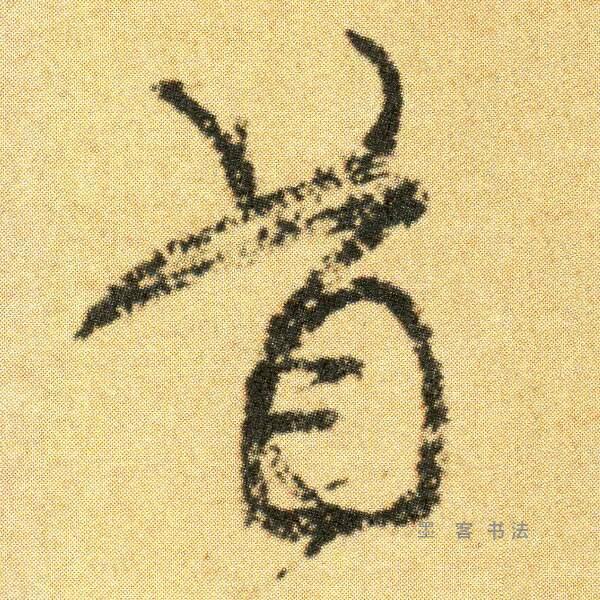 首
墨客书法